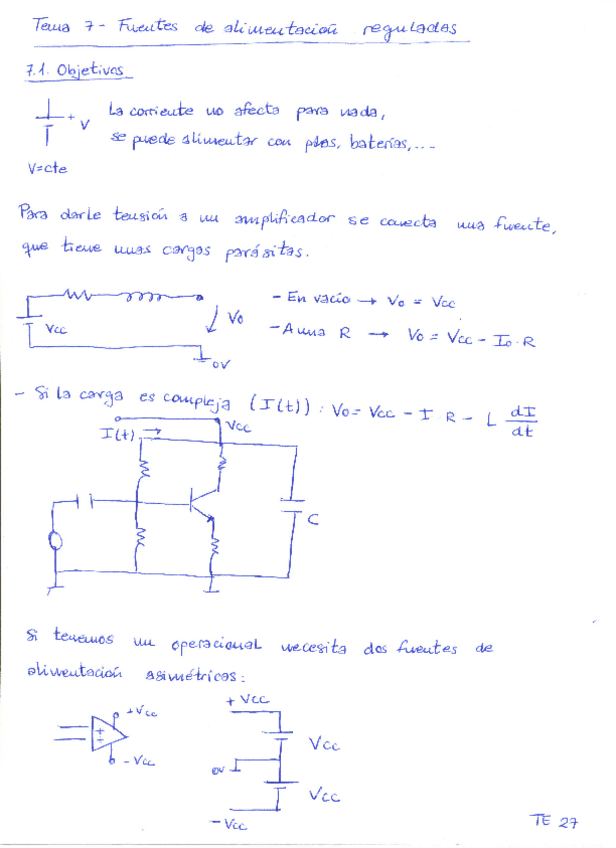 Tema 7- Fuentes de alimentación reguladas
7.1. Objetivos
+ V
La corriente no afecta para nada,
se puede alimentar con pilas, baterías,...
V=cte
Para darle tensión a un amplificador se conecta una fuente,
que tiene unas cargas parásitas.
Vcc
Vo
0V
- En vacío → Vo = Vcc
- A una R → Vo = Vcc - Io·R
- Si la carga es compleja (I(t)): Vo = Vcc - I R - L dI/dt
I(t)
Vcc
C
Si tenemos un operacional necesita dos fuentes de
alimentación asimétricas:
+Vcc
- Vcc
+ Vcc
Vcc
0V
Vcc
- Vcc
TE 27